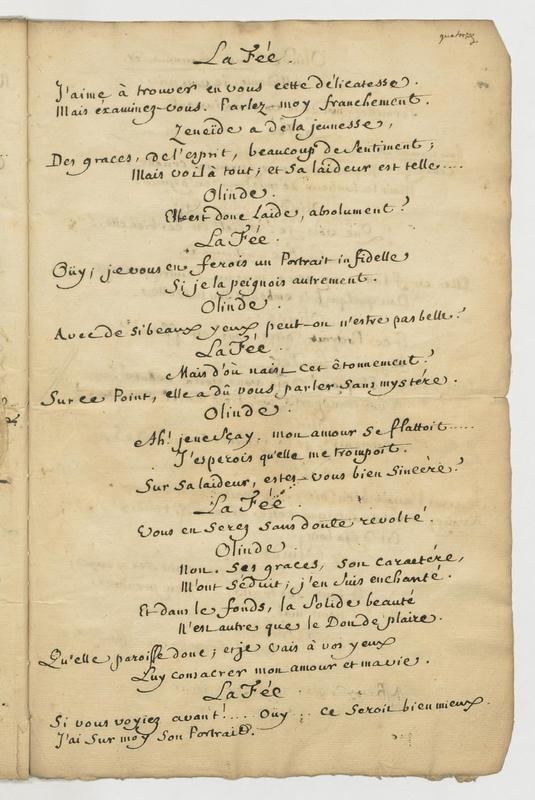 quatorze
La Fée.
J'aime à trouver en vous cette délicatesse.
Mais éxaminez-vous. Parlez-moy franchement.
Zeneïde a de la jeunesse,
Des graces, de l'esprit, beaucoup de Sentiment;
Mais voilà tout; et Sa laideur est telle....
Olinde.
Elle est donc Laide, absolument?
La Fée.
Oüy; je vous en ferois un Portrait infidelle
Si je la peignois autrement.
Olinde.
Avec de si beaux yeux peut-on n'estre pas belle?
La Fée.
Mais d'où naist cet étonnement?
Sur ce Point, elle a dû vous parler Sans mystére.
Olinde.
Ah! je ne Sçay. mon amour Se flattoit.....
J'esperois qu'elle me trompoit.
Sur Sa laideur, estes-vous bien Sincère?
La Fée.
Vous en Serez Sans doute révolté.
Olinde.
Non. Ses graces, Son caractére,
M'ont Séduit; j'en Suis enchanté.
Et dans le fonds, la Solide beauté
N'est autre que le Don de plaire.
Qu'elle paroisse donc; et je vais à vos yeux
Luy consacrer mon amour et ma vie.
La Fée.
Si vous voyiez avant!..... Oüy... ce Seroit bien mieux.
J'ai Sur moy Son Portrait.